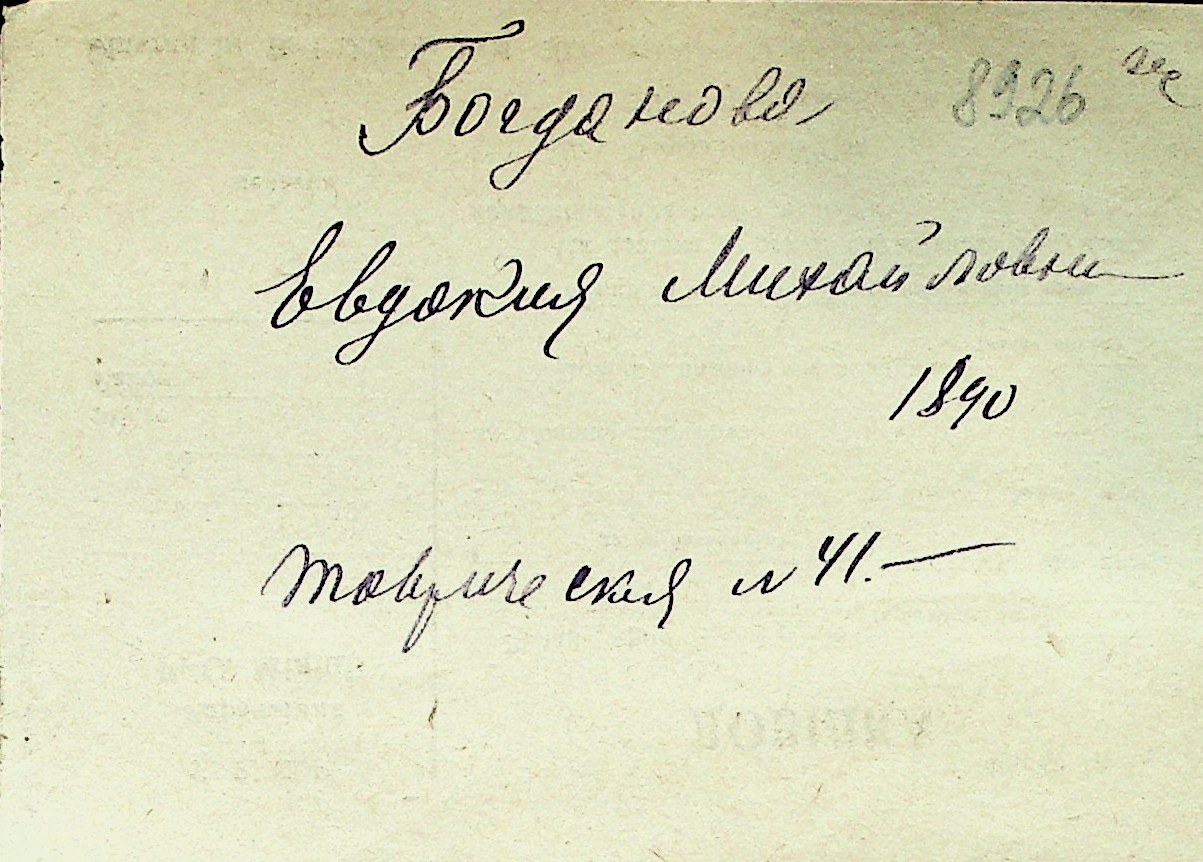 Богданова 8926
Евдокия Михайловна
1890
Таврическая N 41.—